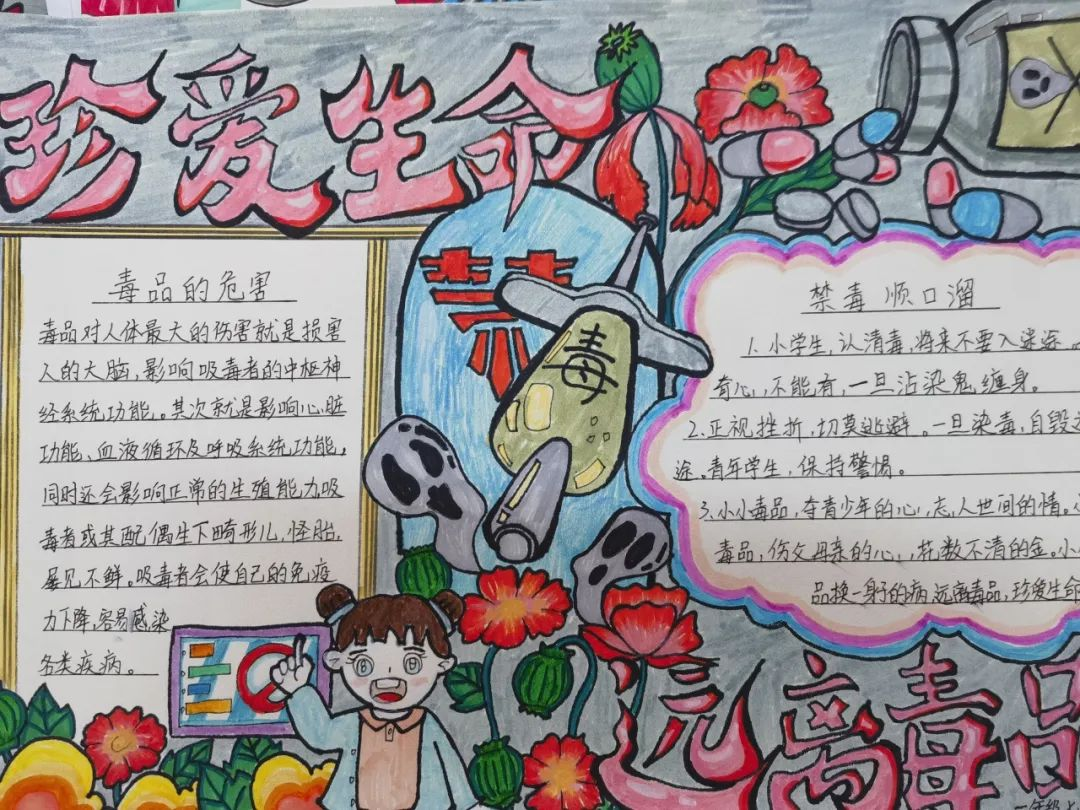 珍爱生命
禁
毒
毒品的危害
毒品对人体最大的伤害就是损害
人的大脑,影响吸毒者的中枢神
经系统功能。其次就是影响心脏
功能、血液循环及呼吸系统功能,
同时还会影响正常的生殖能力,吸
毒者或其配偶生下畸形儿,怪胎,
屡见不鲜。吸毒者会使自己的免疫
力下降,容易感染
各类疾病。
禁毒顺口溜
1.小学生,认清毒,将来不要入迷途。
有心,不能有,一旦沾染鬼缠身。
2.正视挫折,切莫逃避。一旦染毒,自毁
途。青年学生,保持警惕。
3.小小毒品,夺青少年的心,志,人世间的情。
毒品,伤父母亲的心,,花数不清的金。小
品换一身子的病,远离毒品,珍爱生命
远离毒品